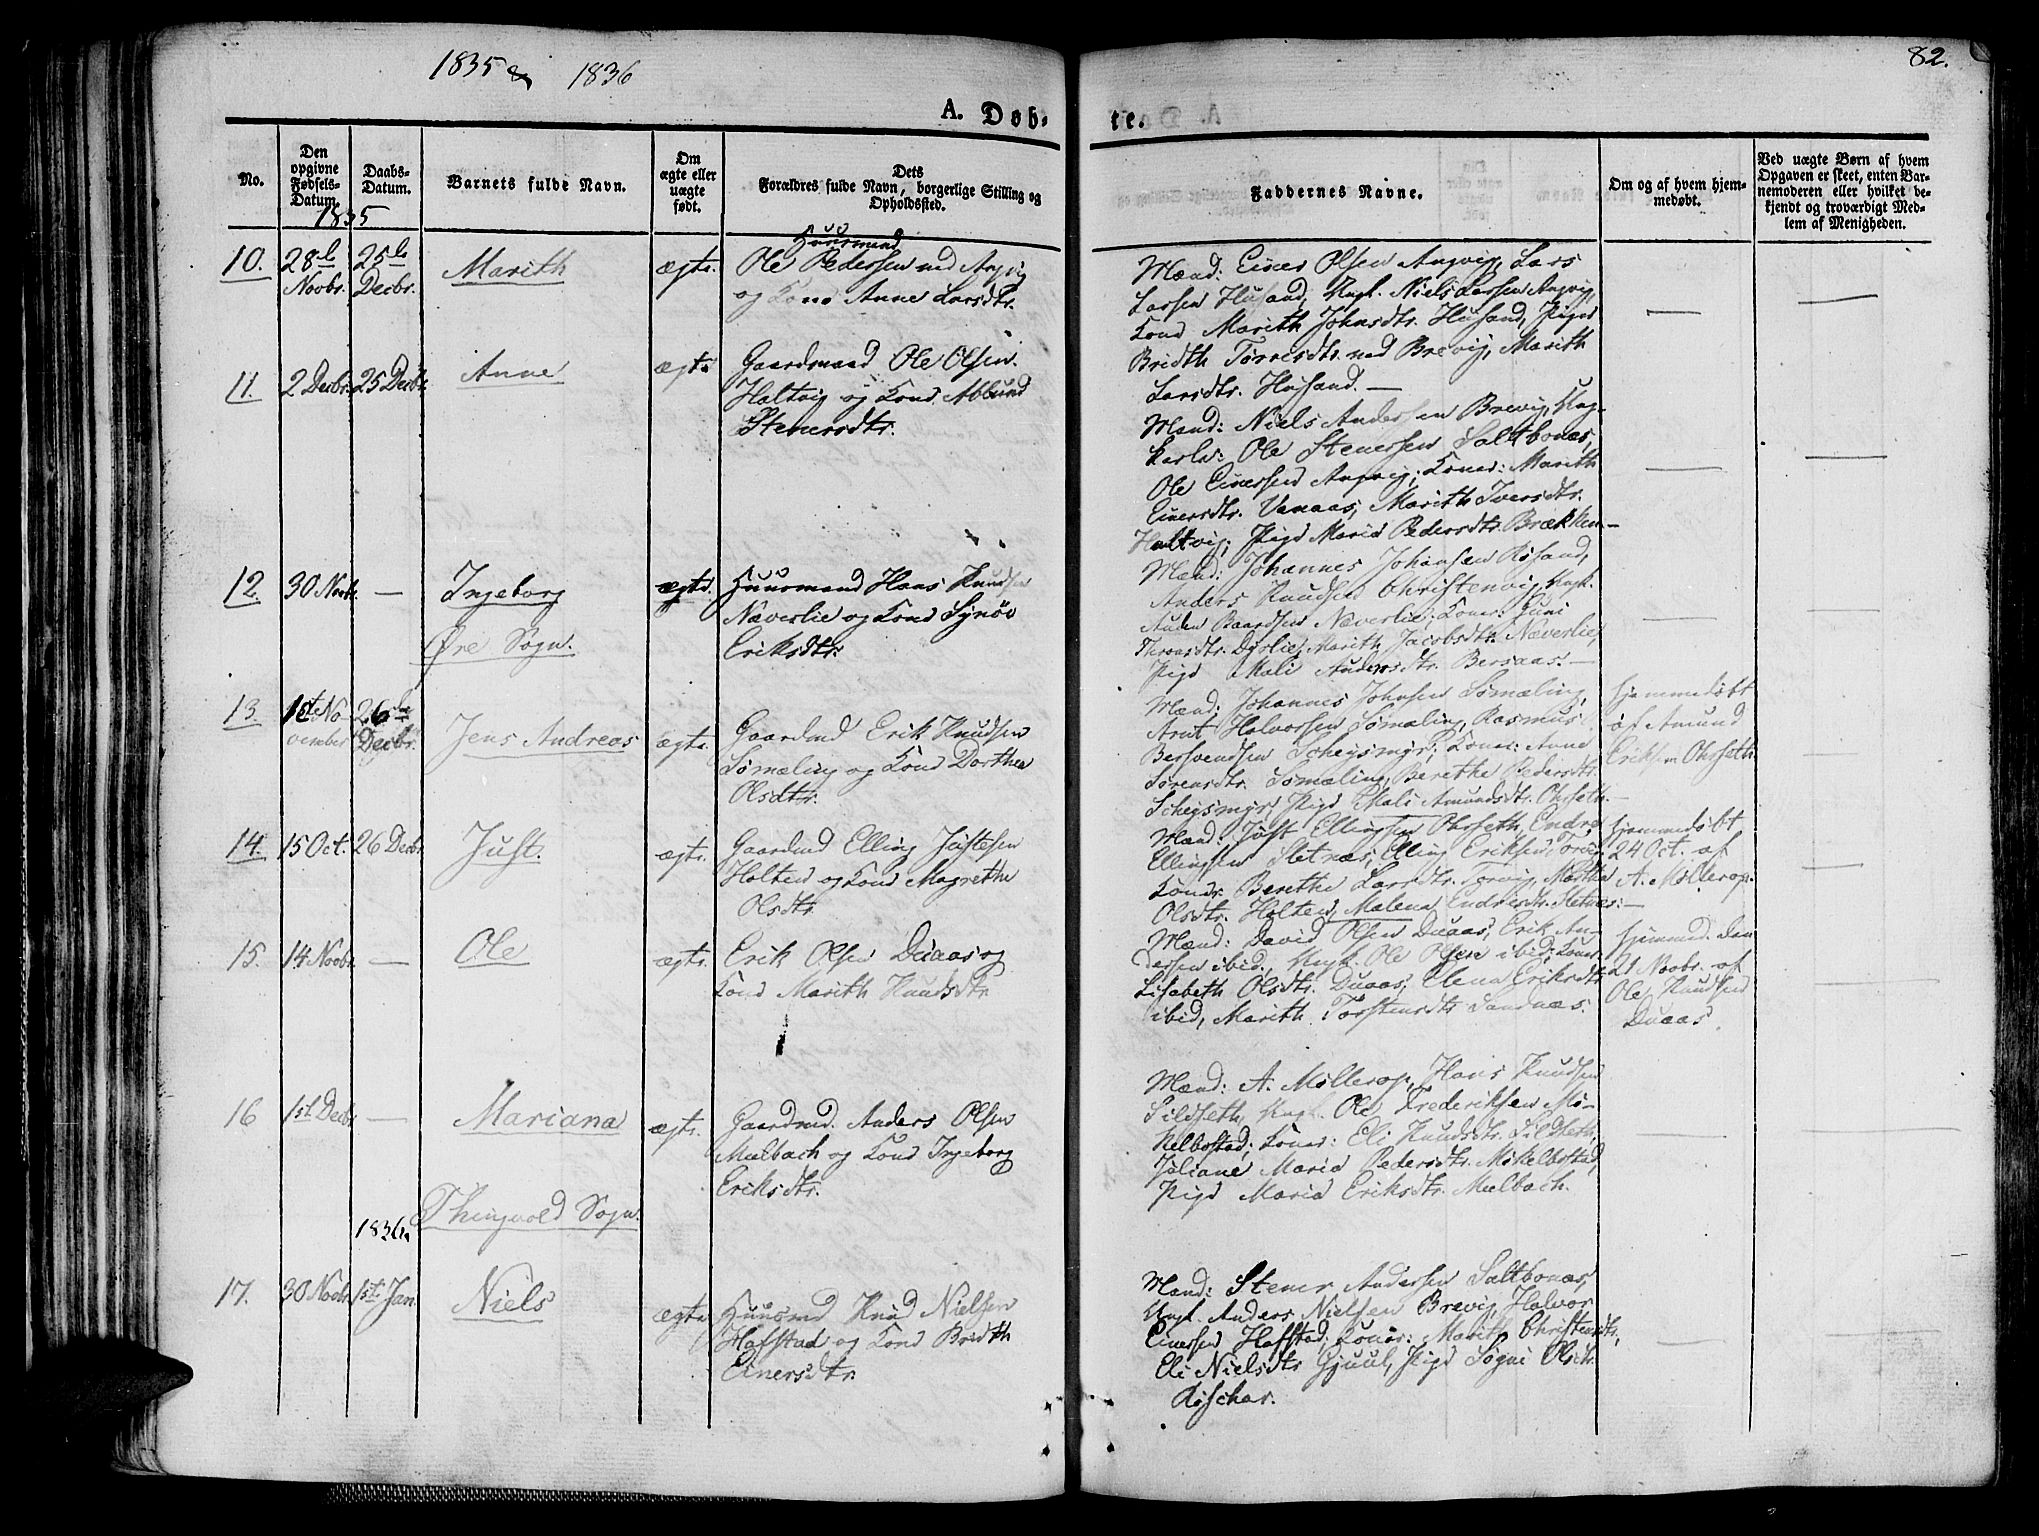 1835 & 1836
82.
A. Døb-
te.
No.
Den opgivne Fødsels-Datum.
Daabs-Datum.
Barnets fulde Navn.
Om ægte eller uægte født.
Dets Forældres fulde Navn, borgerlige Stilling og Opholdssted.
Faddernes Navne.
Om og af hvem hjem-
medøbt.
Ved uægte Børn af hvem
Opgaven er skeet, enten Bar-
nemoderen eller hvilket be-
kjendt og troværdigt Med-
lem af Menigheden.
1835
10. 28de Novbr. 25de Decbr. Marith ægte.
Huusmand
Ole Pedersen ned Angvig
og Kone Anne Larsdtr.
Mænd: Einer Olsen Angvig, Lars
Larsen Husand, Ungk. Niels Larsen Angvig,
Kone Marith Johnsdtr. Husand, Pige
Bridth Torresdtr. ned Brevig, Marith
Larsdtr. Husand. —
11. 2 Decbr. 25 Decbr. Anne ægte
Gaardmand Ole Olsen
Holtvig og Kone Ablund
Stenersdtr.
Mænd: Niels Andersen Brevig, Ung-
karle: Ole Stenersen Saltbonæs,
Ole Einersen Angvig; Koner: Marith
Einersdtr. Vanaas, Marith Iversdtr.
Holtvig; Pige Marie Pedersdtr. Brækken—
12. 30 Novbr. — Ingeborg ægte.
Huusmand Hans Knudsen
Næverlie og Kone Synøv
Eriksdtr.
Mænd: Johannes Johansen Røsand,
Anders Knudsen Christenvig, Ungk.
Auden Baardsen Næverlie; Koner: Guni
Throndsdtr. Dyrlie, Marith Jacobsdtr. Næverlie,
Pige Mali Andersdtr. Bersaas. —
Øre Sogn.
13. 1st No-
vember 26de Decbr. Jens Andreas ægte.
Gaardmd Erik Knudsen
Sømæling og Kone Dorthea
Olsdtr.
Mænd: Johannes Johnsen Sømæling,
Arnt Halvorsen Sømæling, Rasmus
Bersvendsen Scheysmyr; Koner: Anne
Sørensdtr. Sømæling, Berethe Pedersdtr.
Scheysmyr, Pige Mali Amundsdtr. Ohrseth. —
Hjemmedøbt
af Amund
Eriksen Ohrseth.
14. 15 Oct. 26 Decbr. Just. ægte.
Gaardmd Elling Justesen
Holten og Kone Magrethe
Olsdtr.
Mænd: Just Ellingsen Ohrseth, Endre
Ellingsen Sletnæs, Elling Eriksen Torvig
Koner Berethe Larsdtr. Torvig, Martha
Olsdtr. Holten, Malena Endresdtr. Sletnæs: —
Hjemmedøbt
24 Oct. af
A. Møllerop.
15. 14 Novbr. — Ole ægte.
Erik Olsen Duaas og
Kone Marith Knudsdtr
Mænd: David Olsen Duaas, Erik An-
dersen ibid., Ungk. Ole Olsen ibid; Koner
Lisabeth Olsdtr. Duaas, Elena Eriksdtr
ibid, Marith Torstensdtr Sandnæs.
Hjemmed. den
21 Novbr. af
Ole Knudsen
Duaas.
16 1st Decbr. — Mariana ægte.
Gaardmd. Anders Olsen
Mulbach og Kone Ingeborg
Eriksdtr.
Mænd: A. Møllerop, Hans Knudsen
Sildseth, Ungk. Ole Frederiksen Mi-
kelbostad; Koner: Eli Knudsdtr. Sildseth,
Juliane Marie Pedersdtr. Mikelbostad,
Pige Marie Eriksdtr. Mulbach.
Thingvold Sogn.
1836.
17. 30 Novbr. 1st Jan Niels ægte
Huusmd Knud Nielsen
Hafstad og Kone Bridth
Einersdtr.
Mænd: Stener Andersen Saltbonæs,
Ungk. Anders Nielsen Brevig, Halvor
Einersen Hafstad; Koner: Marith Christensdtr,
Eli Nielsdtr Gjuul, Pige Signi Olsdtr
Røschar.